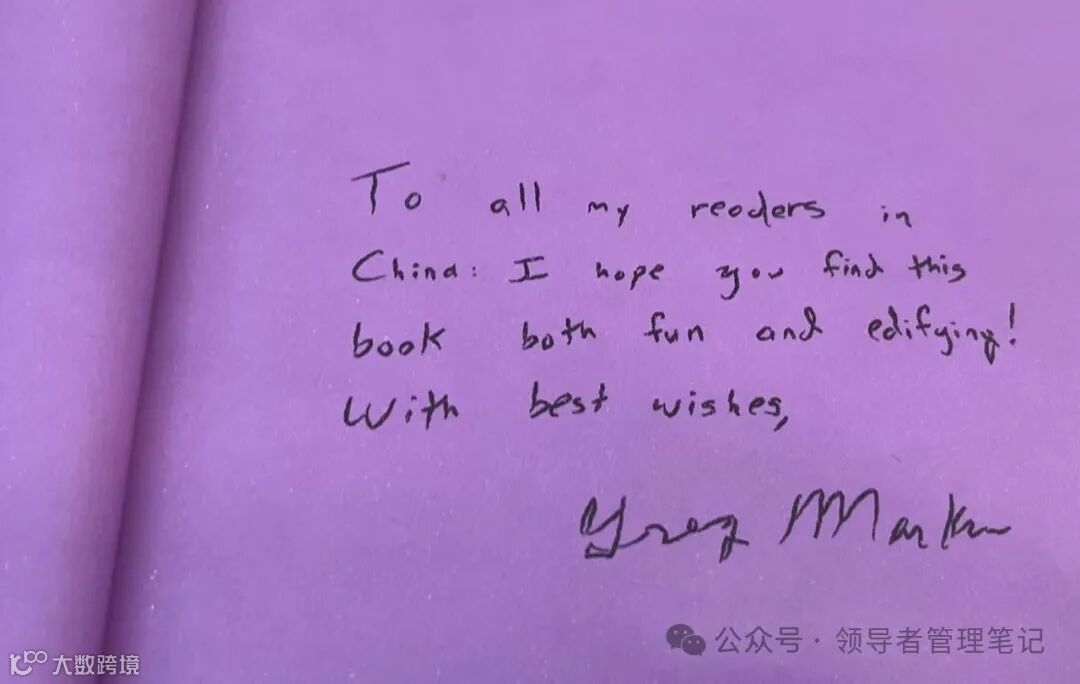 To all my readers in
China: I hope you find this
book both fun and edifying!
With best wishes,
Greg
公众号·领导者管理笔记
大数跨境